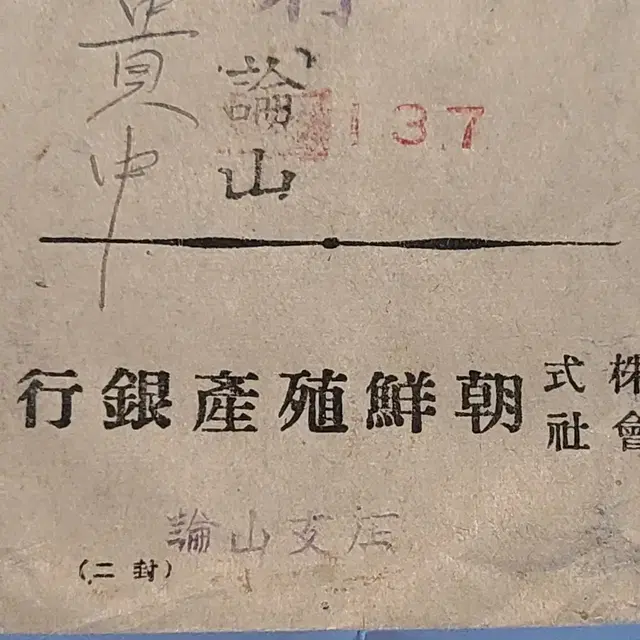 貫中
論山
137
株式會社朝鮮殖產銀行
論山支店
(封二)